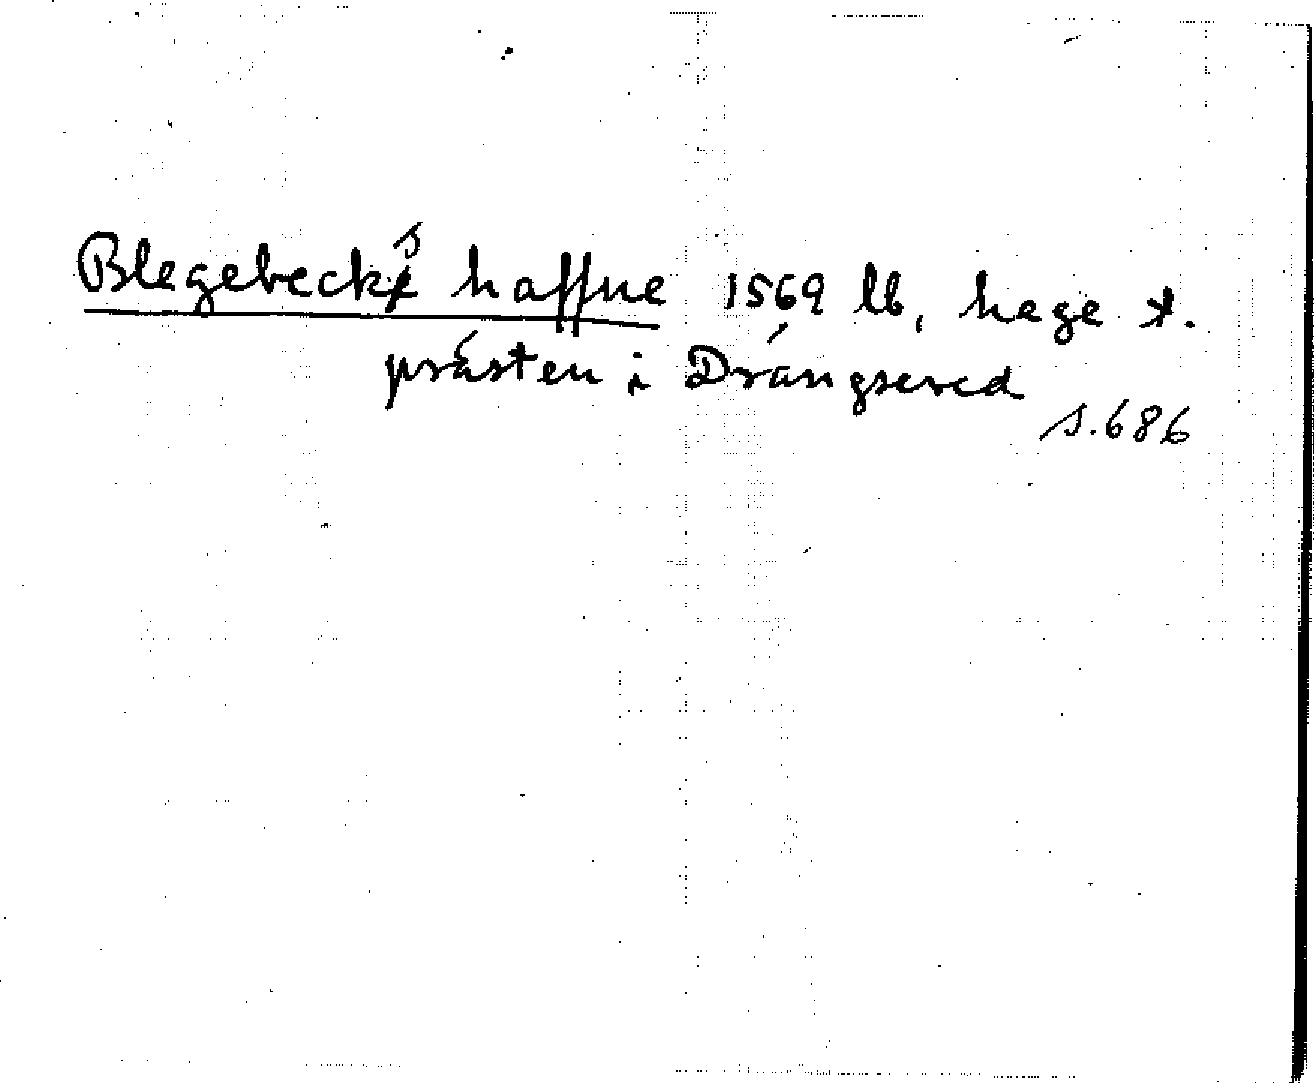 Blegebecks haffue 1569 lb, hage t.
prästen i Drängsered
s. 686